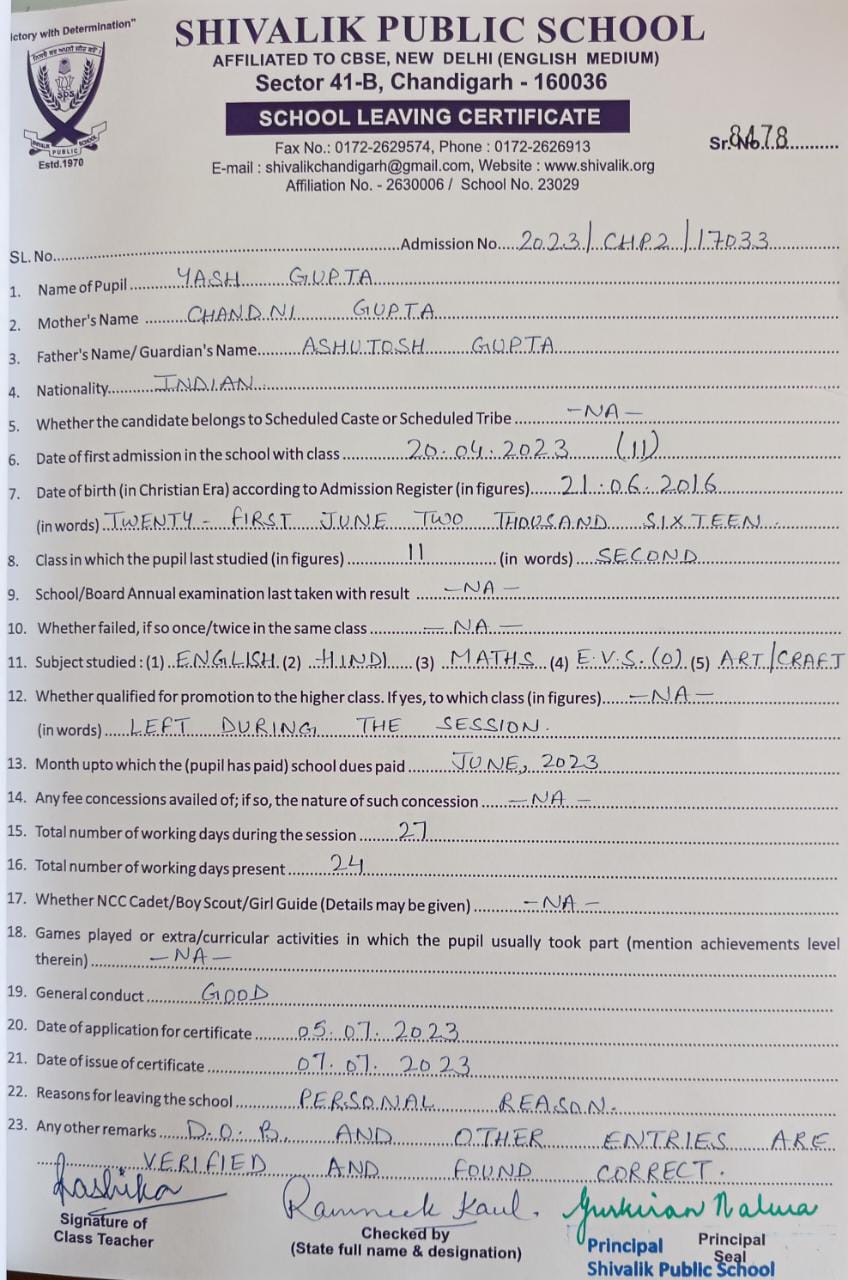 ictory with Determination"
SHIVALIK PUBLIC SCHOOL
AFFILIATED TO CBSE, NEW DELHI (ENGLISH MEDIUM)
Sector 41-B, Chandigarh - 160036
SCHOOL LEAVING CERTIFICATE
SPS
PUBLIC
Estd.1970
Fax No.: 0172-2629574, Phone : 0172-2626913
Sr. No. 8478
E-mail : shivalikchandigarh@gmail.com, Website : www.shivalik.org
Affiliation No. - 2630006 / School No. 23029
SL. No. Admission No. 2023/CHP2/17033
1. Name of Pupil YASH GUPTA
2. Mother's Name CHANDNI GUPTA
3. Father's Name/ Guardian's Name ASHUTOSH GUPTA
4. Nationality INDIAN
5. Whether the candidate belongs to Scheduled Caste or Scheduled Tribe -NA-
6. Date of first admission in the school with class 20.04.2023 (II)
7. Date of birth (in Christian Era) according to Admission Register (in figures) 21.06.2016
(in words) TWENTY-FIRST JUNE TWO THOUSAND SIXTEEN.
8. Class in which the pupil last studied (in figures) II (in words) SECOND
9. School/Board Annual examination last taken with result -NA-
10. Whether failed, if so once/twice in the same class -NA-
11. Subject studied : (1) ENGLISH (2) HINDI (3) MATHS (4) E.V.S.(O) (5) ART/CRAFT
12. Whether qualified for promotion to the higher class. If yes, to which class (in figures) -NA-
(in words) LEFT DURING THE SESSION.
13. Month upto which the (pupil has paid) school dues paid JUNE, 2023
14. Any fee concessions availed of; if so, the nature of such concession -NA-
15. Total number of working days during the session 27
16. Total number of working days present 24
17. Whether NCC Cadet/Boy Scout/Girl Guide (Details may be given) -NA-
18. Games played or extra/curricular activities in which the pupil usually took part (mention achievements level
therein) -NA-
19. General conduct GOOD
20. Date of application for certificate 05.07.2023
21. Date of issue of certificate 07.07.2023
22. Reasons for leaving the school PERSONAL REASON.
23. Any other remarks D.O.B. AND OTHER ENTRIES ARE
VERIFIED AND FOUND CORRECT.
Rashika Ramneek Kaul. Gurkiran Nalwa
Signature of Class Teacher
Checked by
(State full name & designation)
Principal Seal
Principal
Shivalik Public School